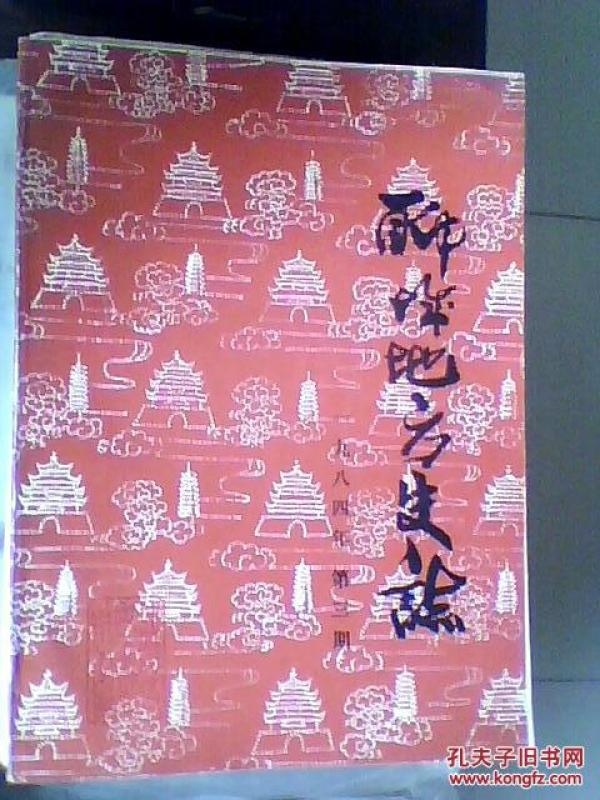 聊城地方史誌
一九八四年 第三期
孔夫子旧书网
www.kongfz.com